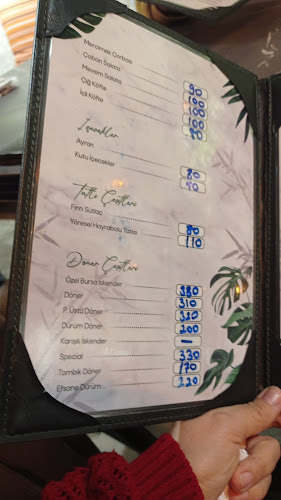 Mercimek Çorbası 90
Çoban Salata 100
Mevsim Salata 100
Çiğ Köfte 100
İçli Köfte 80
İçecekler
Ayran
Kutu İçecekler 50
Tatlı Çeşitleri
Fırın Sütlaç 90
Yöresel Hayrabolu Tatlısı 110
Döner Çeşitleri
Özel Bursa İskender 380
Döner 310
P. Üstü Döner 320
Dürüm Döner 200
Karışık İskender -
Special 330
Tombik Döner 170
Efsane Dürüm 220